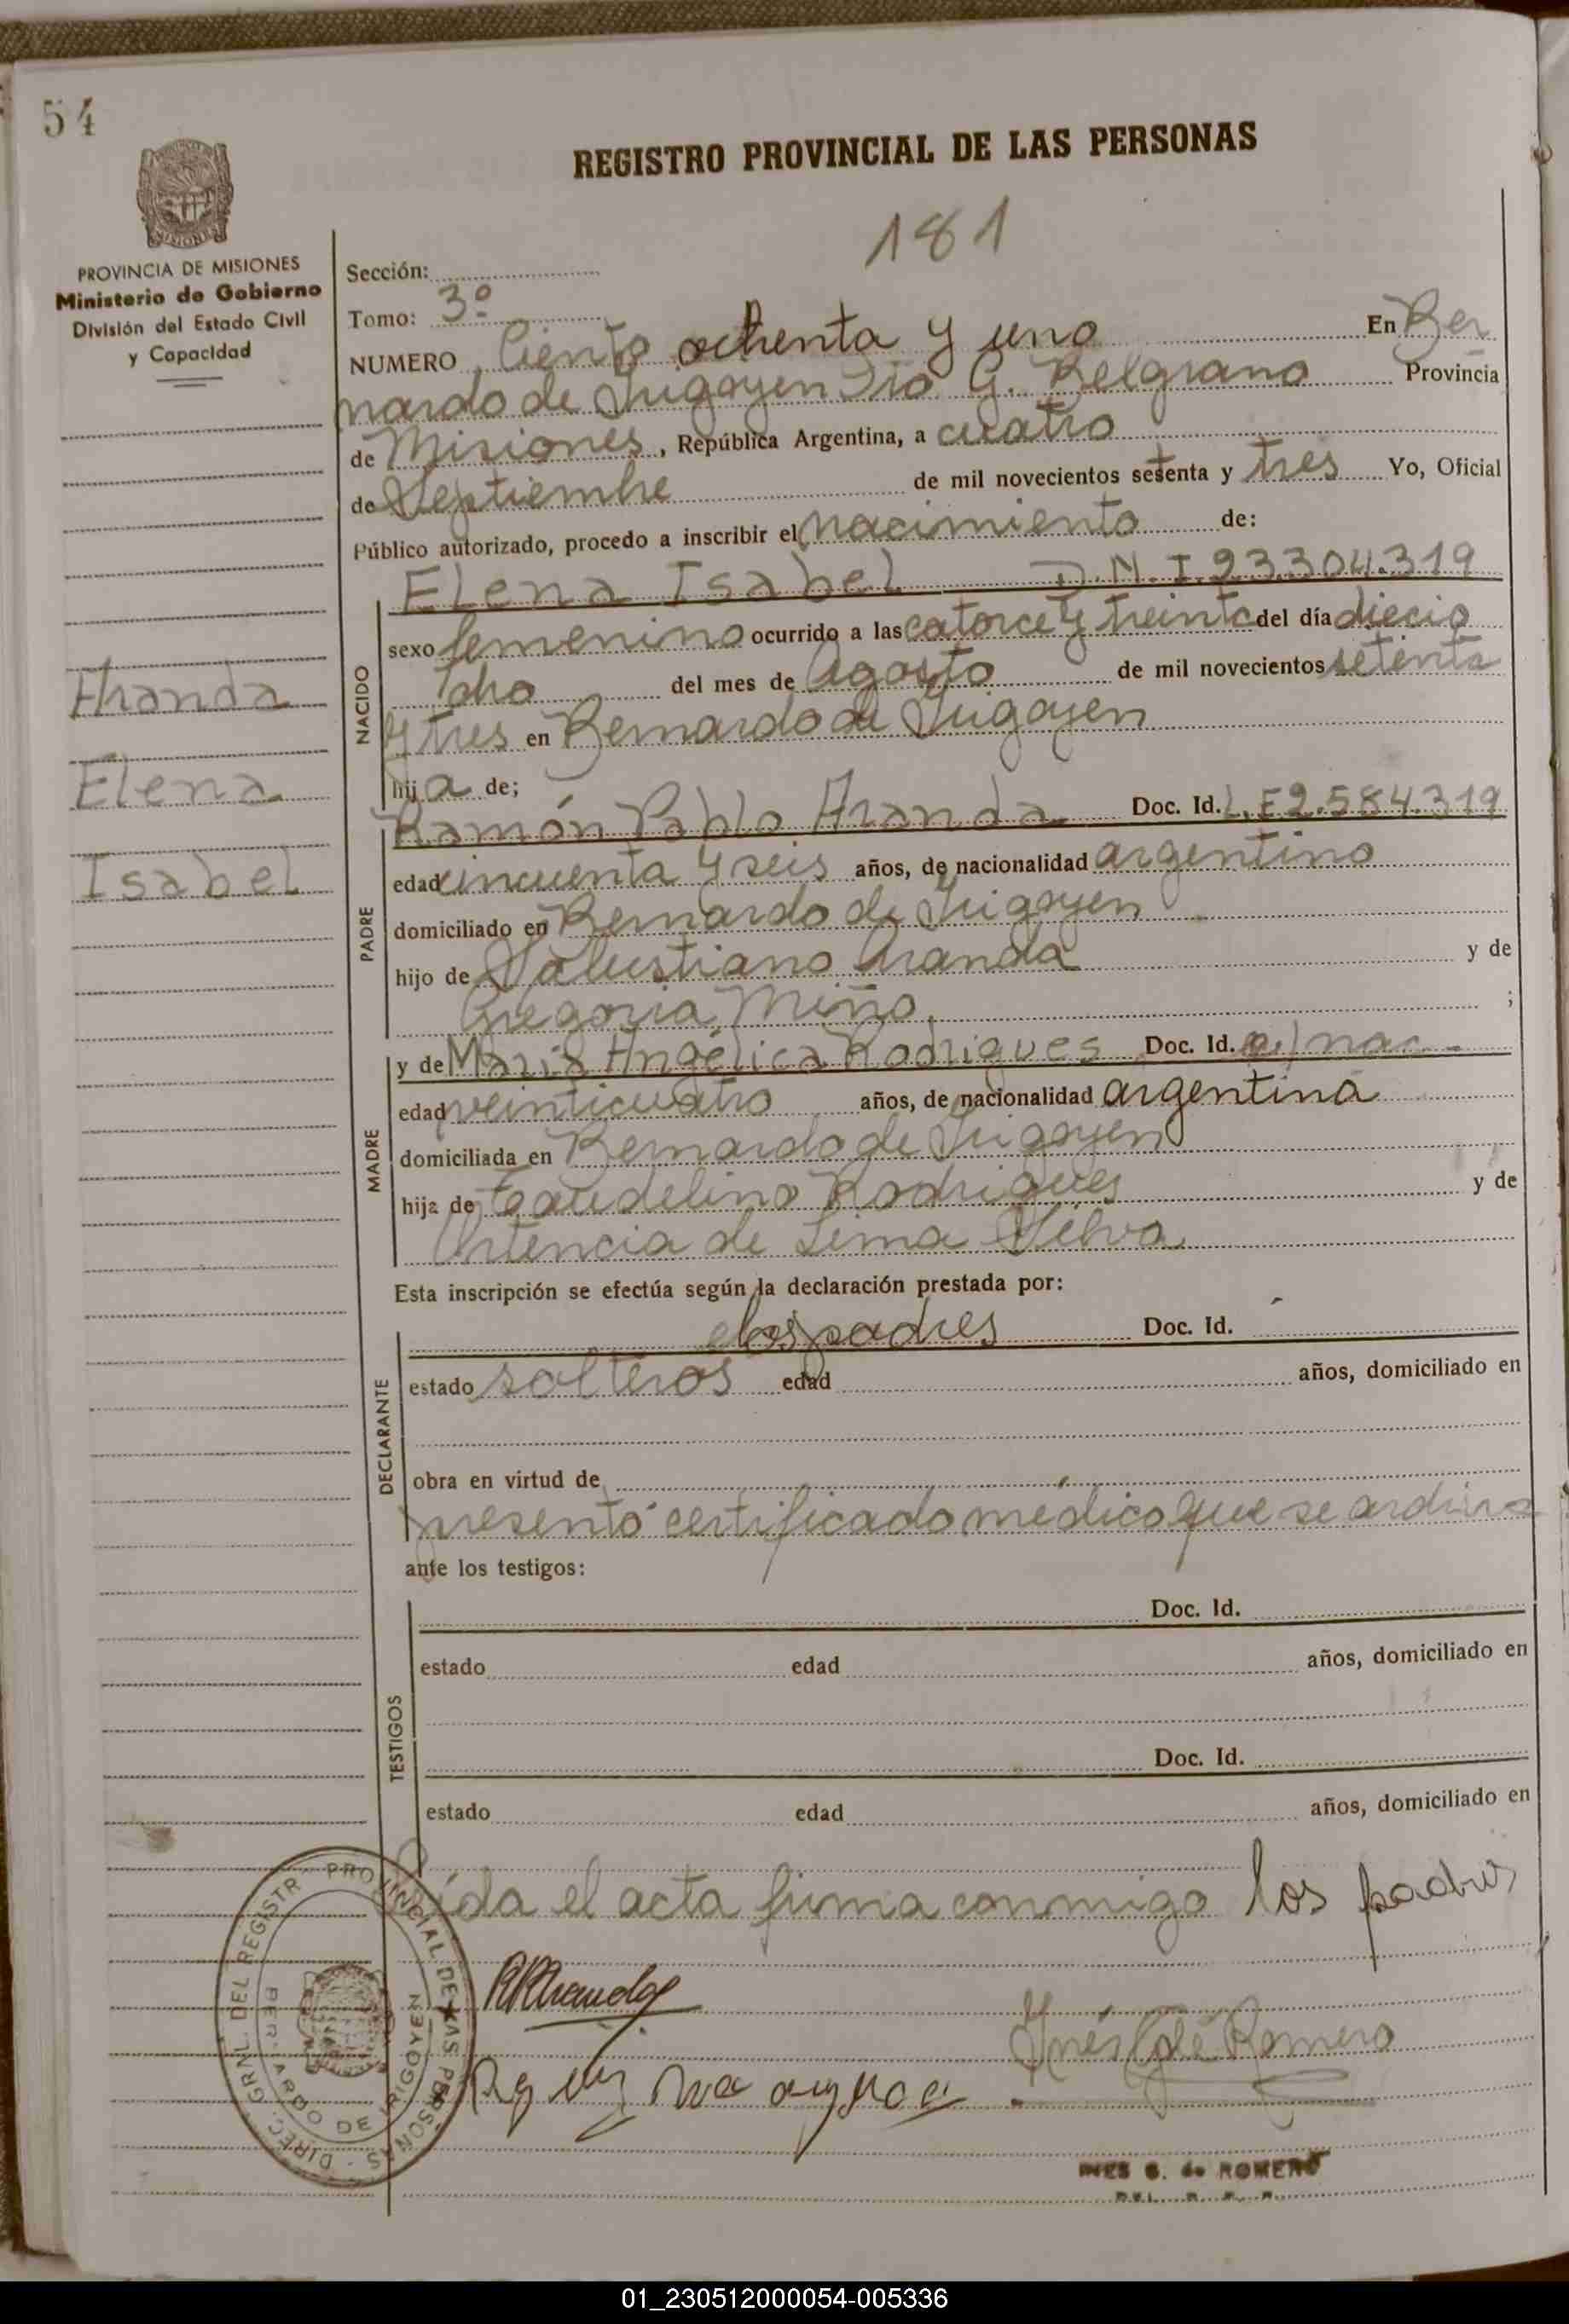 54
REGISTRO PROVINCIAL DE LAS PERSONAS
181
MISIONES
PROVINCIA DE MISIONES
Ministerio de Gobierno
División del Estado Civil
y Capacidad
Sección:
Tomo: 3º
NUMERO Ciento ochenta y uno En Ber
nardo de Irigoyen Dto. G. Belgrano Provincia
de Misiones, República Argentina, a cuatro
de Septiembre de mil novecientos setenta y tres Yo, Oficial
Público autorizado, procedo a inscribir el nacimiento de:
Elena Isabel D.N.I. 23.304.319
NACIDO
sexo femenino ocurrido a las catorce y treinta del día diecio
cho del mes de Agosto de mil novecientos setenta
y tres en Bernardo de Irigoyen
hija de;
Aranda
Elena
Isabel
PADRE
Ramón Pablo Aranda Doc. Id. L.E 2.584.319
edad cincuenta y seis años, de nacionalidad argentino
domiciliado en Bernardo de Irigoyen
hijo de Salustiano Aranda y de
Gregoria Miño ;
MADRE
y de María Angélica Rodrigues Doc. Id. nac.
edad veinticuatro años, de nacionalidad argentina
domiciliada en Bernardo de Irigoyen
hija de Rodrigues y de
Ortencia de Lima Silva
Esta inscripción se efectúa según la declaración prestada por:
DECLARANTE
los padres Doc. Id.
estado solteros edad años, domiciliado en
obra en virtud de
presentó certificado médico que se archiva
ante los testigos:
TESTIGOS
Doc. Id.
estado edad años, domiciliado en
Doc. Id.
estado edad años, domiciliado en
Leída el acta firma conmigo los padres
DIREC. GRAL. DEL REGISTRO PROVINCIAL DE LAS PERSONAS
BERNARDO DE IRIGOYEN
Inés G de Romero
INES G. de ROMERO
01_230512000054-005336